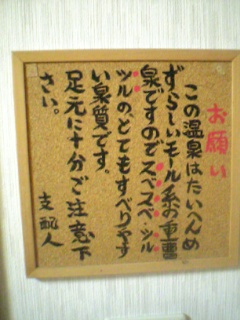 お願い
この温泉はたいへんめ
ずらしいモール系の重曹
泉ですのでスベスベ・ツル
ツルの、とてもすべりやす
い泉質です。
足元に十分ご注意下
さい。
支配人